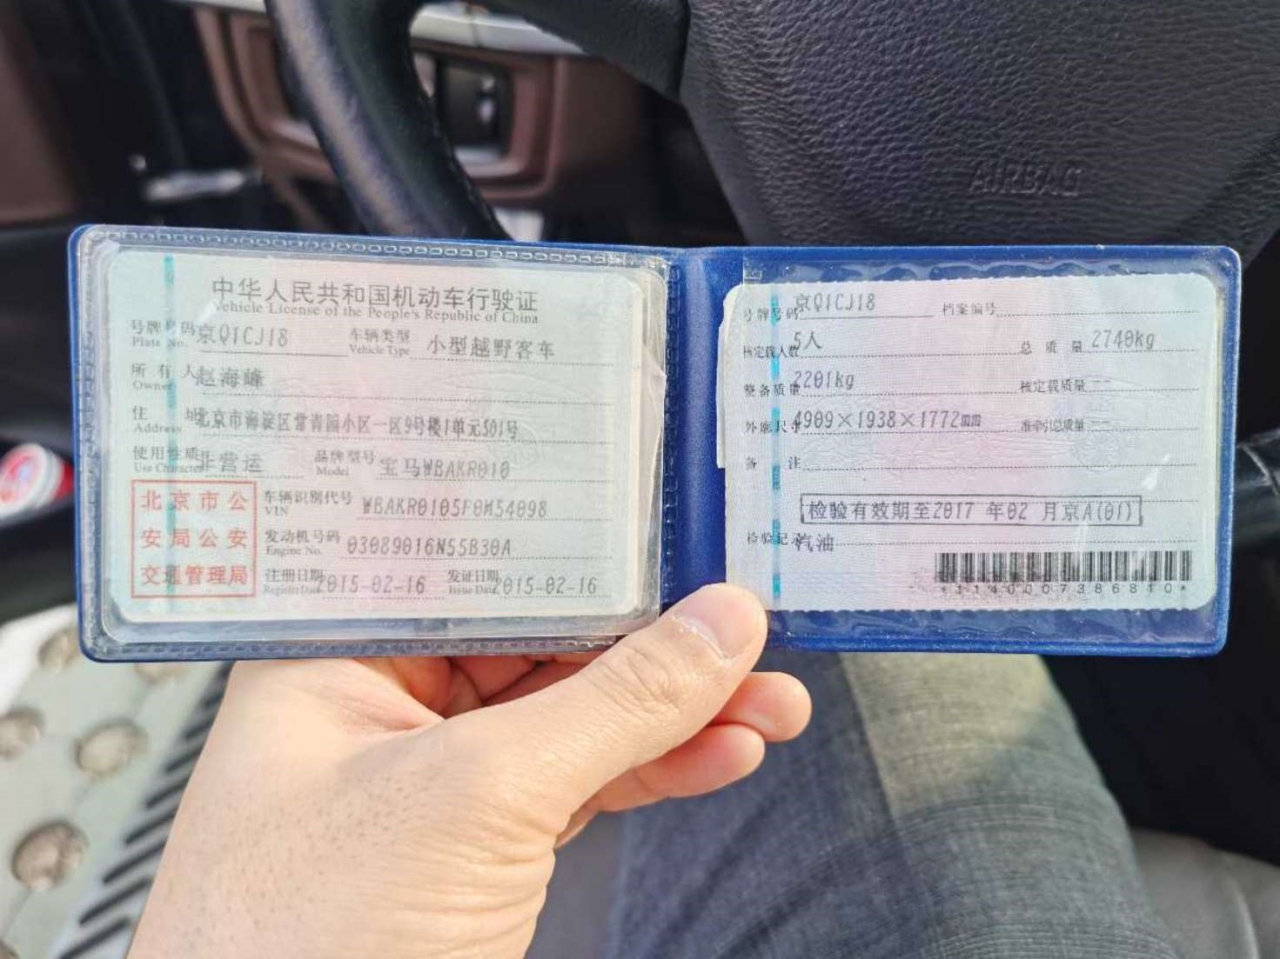 AIRBAG
中华人民共和国机动车行驶证
Vehicle License of the People's Republic of China
号牌号码 京Q1CJ18 车辆类型 小型越野客车
Plate No. Vehicle Type
所有人 赵海峰
Owner
住址 北京市海淀区常青园小区一区9号楼1单元501号
Address
使用性质 非营运 品牌型号 宝马WBAKR010
Use Character Model
北京市公
安局公安
交通管理局
车辆识别代号 WBAKR0105F0M54098
VIN
发动机号码 03089016N55B30A
Engine No.
注册日期 2015-02-16 发证日期 2015-02-16
Register Date Issue Date
号牌号码 京Q1CJ18 档案编号
核定载人数 5人 总质量 2740kg
整备质量 2201kg 核定载质量 --
外廓尺寸 4909×1938×1772mm 准牵引总质量 --
备注
检验有效期至2017年02月京A(01)
检验记 汽油
*1140007386810*